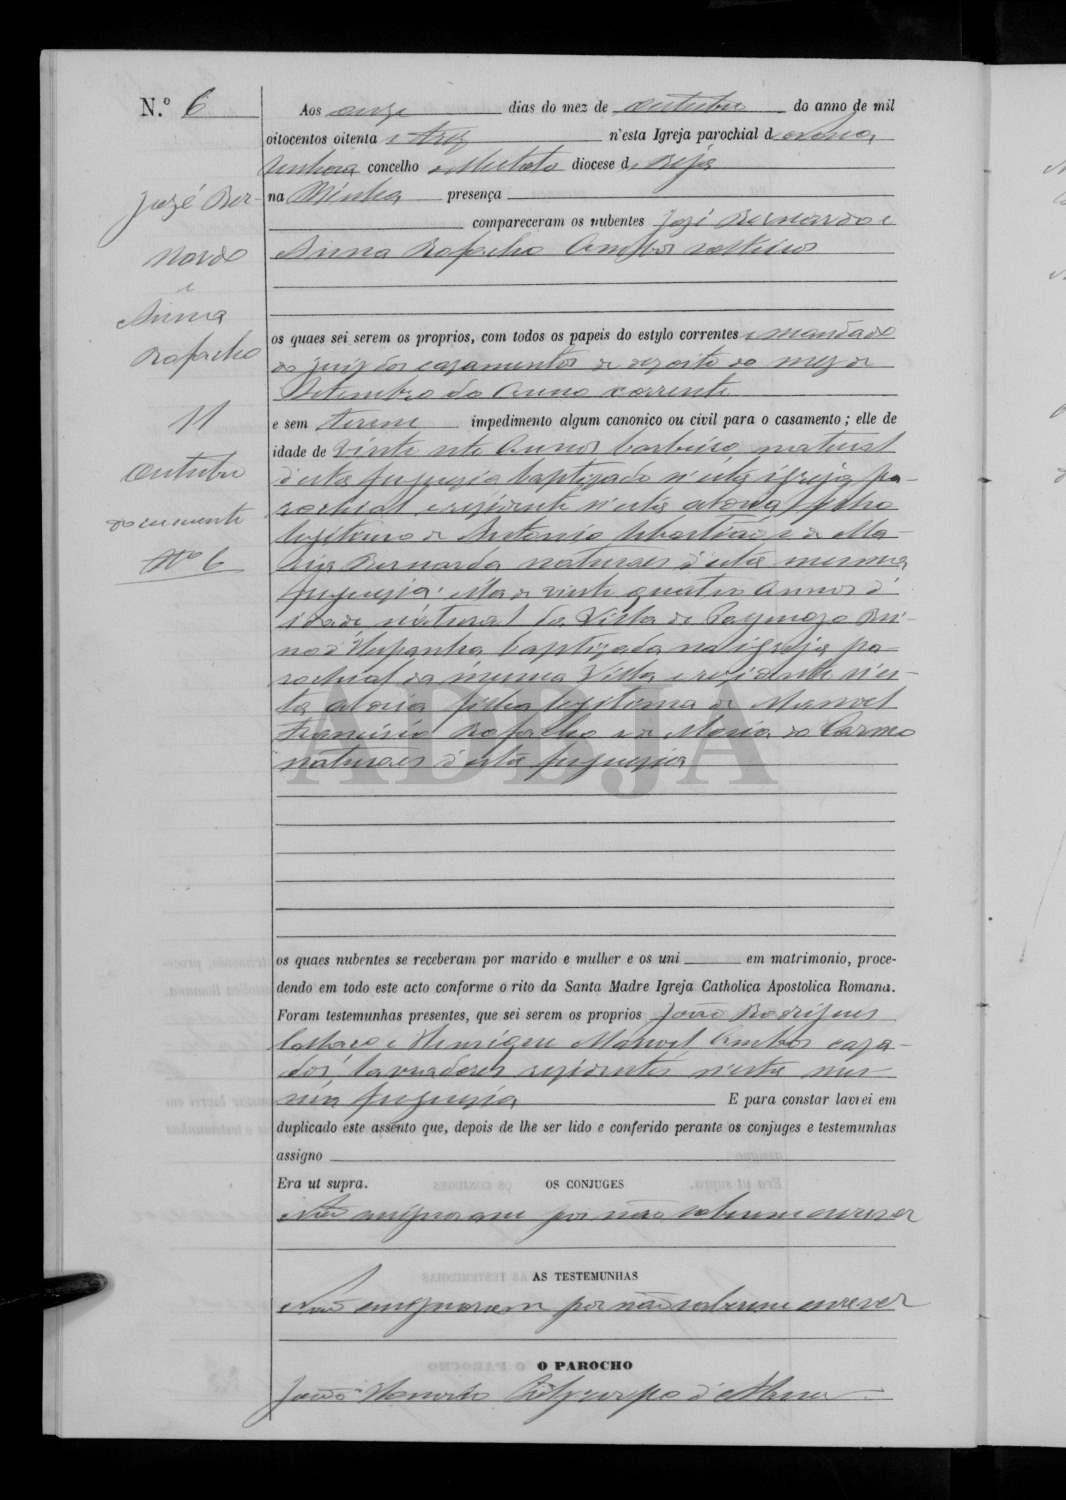 N.º 6
Aos onze dias do mez de Outubro do anno de mil
oitocentos oitenta e trez n'esta Igreja parochial d
Senhora concelho diocese de Beja
na Minha presença
compareceram os nubentes José Bernardo e
Anna Rafacho Ambos solteiros
José Ber-
nardo
e
Anna
Rafacho
11
Outubro
documento
Nº 6
os quaes sei serem os proprios, com todos os papeis do estylo correntes e mandado
do juiz dos cazamentos de dezoito do mez de
Setembro do Anno corrente
e sem terem impedimento algum canonico ou civil para o casamento; elle de
idade de vinte sete Annos natural
d'esta freguezia baptizado n'esta igreja pa-
rochial e rezidente n'esta aldeia filho
legitimo de Antonio Sebastião e de Ma-
ria Bernarda naturaes d'esta mesma
freguezia: ella de vinte quatro Annos d'
idade natural da Villa de Paymogo Rei-
no d'Hespanha baptizada na igreja pa-
rochial da mesma Villa e rezidente n'es-
ta aldeia filha legitima de Manoel
Francisco Rafacho e de Maria do Carmo
naturaes d'esta freguezia
ADBJA
os quaes nubentes se receberam por marido e mulher e os uni em matrimonio, proce-
dendo em todo este acto conforme o rito da Santa Madre Igreja Catholica Apostolica Romana.
Foram testemunhas presentes, que sei serem os proprios João Rodrigues
e Henrique Manoel Ambos caza-
dos lavradores rezidentes n'esta mes-
ma freguezia E para constar lavrei em
duplicado este assento que, depois de lhe ser lido e conferido perante os conjuges e testemunhas
assigno
Era ut supra. OS CONJUGES
Não assignaram por não saberem escrever
AS TESTEMUNHAS
Não assignaram por não saberem escrever
O PAROCHO
João